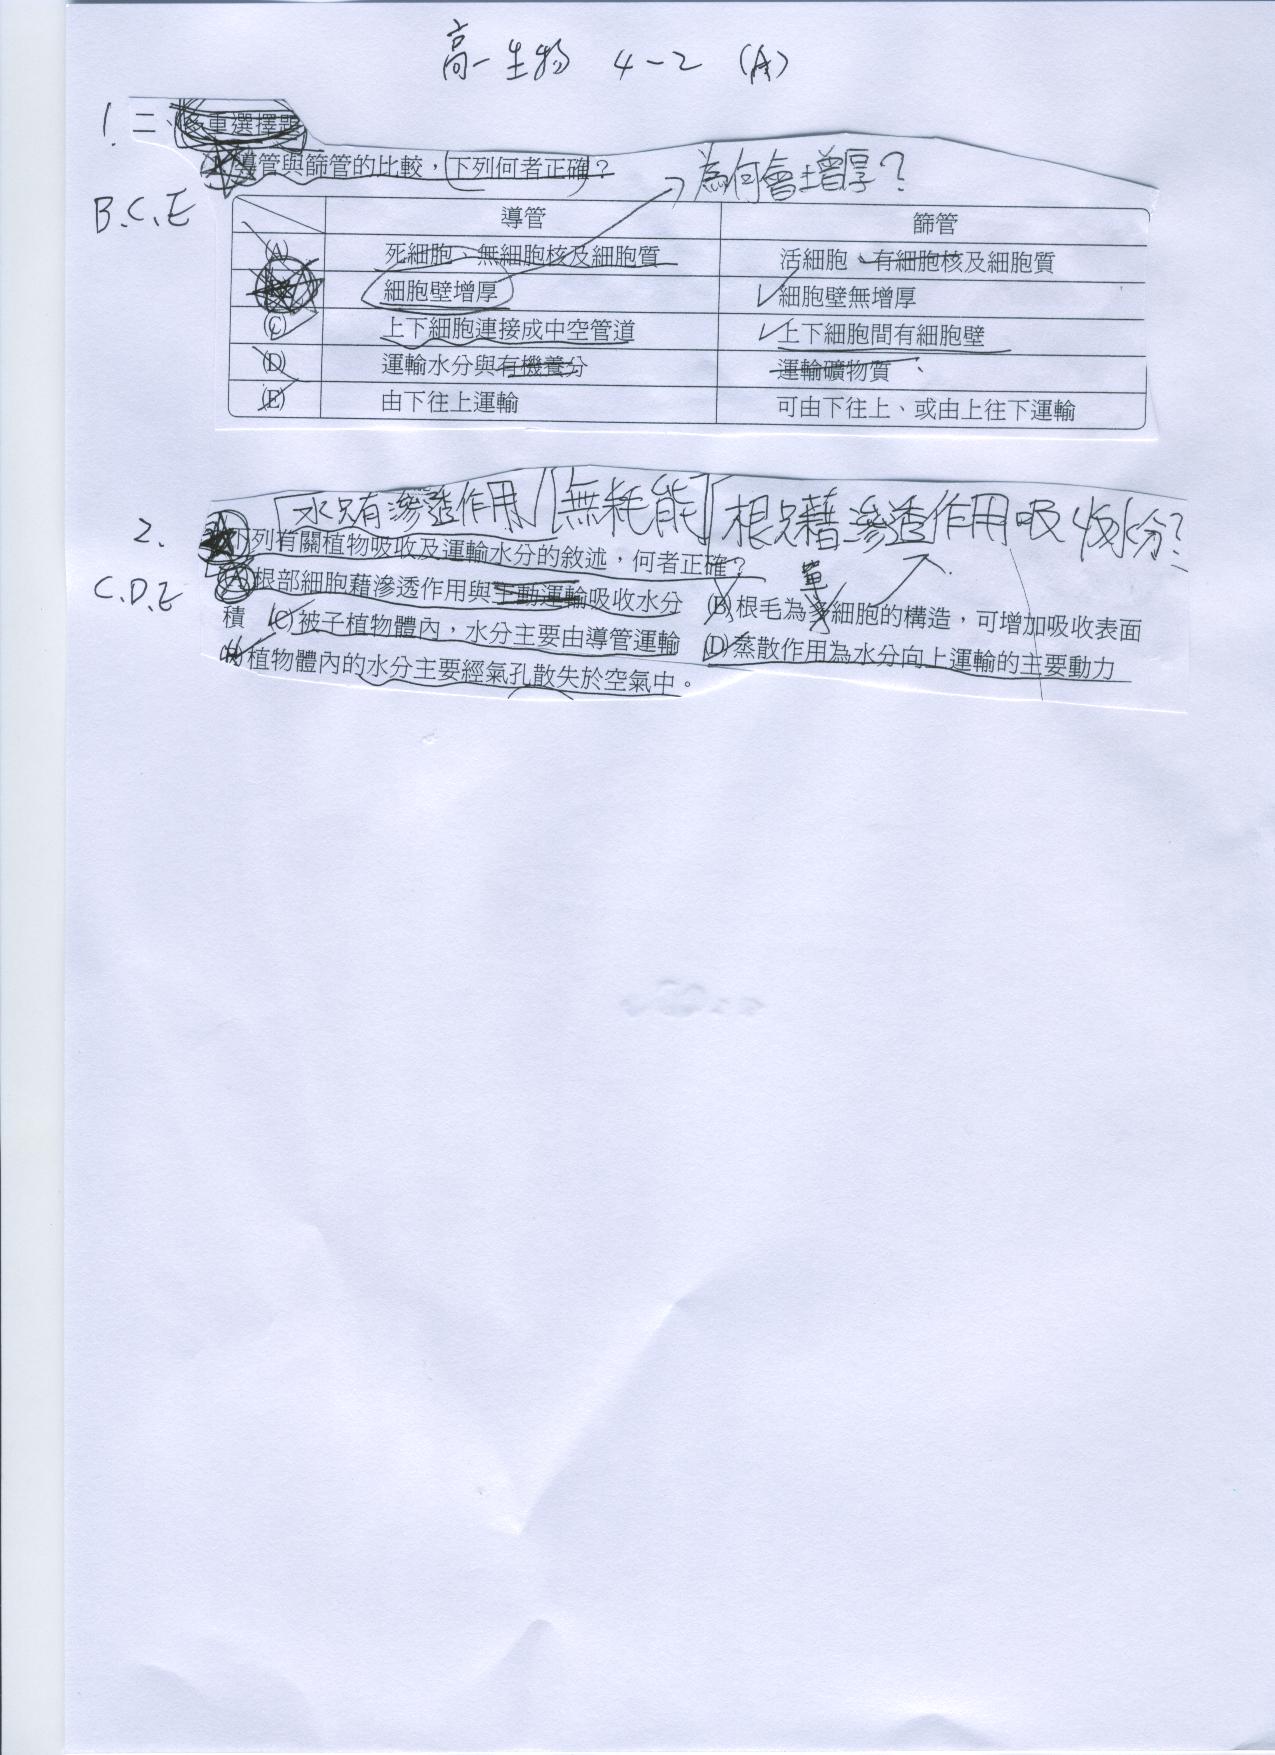 高一生物 4-2 (A)
1. 二、多重選擇題
導管與篩管的比較，下列何者正確？
為何會增厚？
B.C.E
導管 篩管
(A) 死細胞、無細胞核及細胞質 活細胞、有細胞核及細胞質
細胞壁增厚 細胞壁無增厚
(C) 上下細胞連接成中空管道 上下細胞間有細胞壁
(D) 運輸水分與有機養分 運輸礦物質
(E) 由下往上運輸 可由下往上、或由上往下運輸
水只有滲透作用 無耗能 根只藉滲透作用吸收水分？
2. 下列有關植物吸收及運輸水分的敘述，何者正確？
C.D.E
(A)根部細胞藉滲透作用與主動運輸吸收水分 (B)根毛為多細胞的構造，可增加吸收表面
單
積 (C)被子植物體內，水分主要由導管運輸 (D)蒸散作用為水分向上運輸的主要動力
植物體內的水分主要經氣孔散失於空氣中。